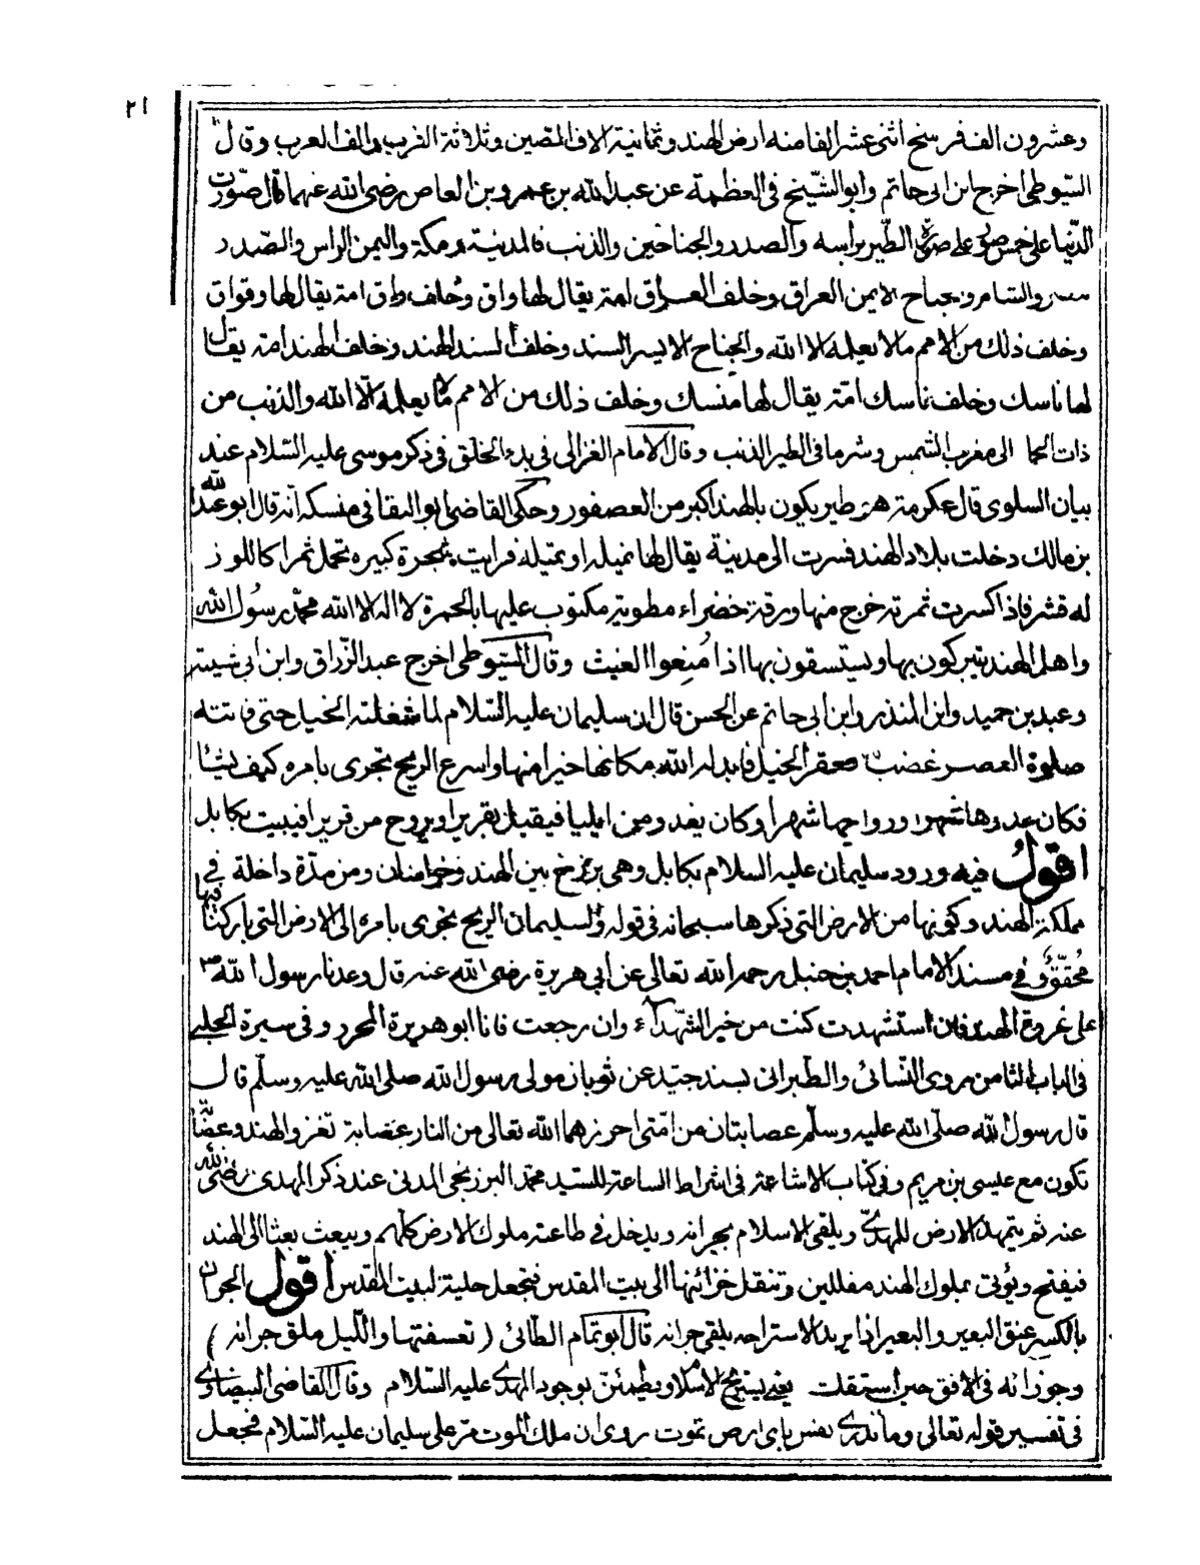 ٢١
وعشرون الف فرسخ اثنى عشر الفا منه ارض الهند وثمانية الاف الصين وثلاثة الغرب والف العرب وقال
السيوطى اخرج ابن ابى حاتم وابو الشيخ فى العظمة عن عبد الله بن عمرو بن العاص رضى الله عنهما قال صورت
الدنيا على خمس صور على صورة الطير براسه والصدر والجناحين والذنب فالمدينة ومكة واليمن الراس والصدر
مصر والشام والجناح الايمن العراق وخلف العراق امة يقال لها واق وخلف واق امة يقال لها وقواق
وخلف ذلك من الامم ما لا يعلمه الا الله والجناح الايسر السند وخلف السند الهند وخلف الهند امة يقال
لها ناسك وخلف ناسك امة يقال لها منسك وخلف ذلك من الامم ما لا يعلمه الا الله والذنب من
ذات الحما الى مغرب الشمس وشر ما فى الطير الذنب وقال الامام الغزالى فى بدء الخلق فى ذكر موسى عليه السلام عند
بيان السلوى قال عكرمة هو طير يكون بالهند اكبر من العصفور وحكى القاضى ابو البقا فى منسكه انه قال ابو عبد الله
بن مالك دخلت بلاد الهند فسرت الى مدينة يقال لها نميله او تميله فرايت شجرة كبيره تحمل ثمرا كاللوز
له قشر فاذا كسرت ثمرته خرج منها ورقة خضراء مطوية مكتوب عليها بالحمرة لا اله الا الله محمد رسول الله
واهل الهند يتبركون بها ويستسقون بها اذا مُنِعوا الغيث وقال السيوطى اخرج عبد الرزاق وابن ابى شيبة
وعبد بن حميد وابن المنذر وابن ابى حاتم عن الحسن قال ان سليمان عليه السلام لما شغلته الخيل حتى فاتته
صلوة العصر غضب لله فعقر الخيل فابدله الله مكانها خيرا منها واسرع الريح تجرى بامره كيف يشا
فكان غدوها شهرا ورواحها شهرا وكان يغدو من ايليا فيقيل بقريرا ويروح من قريرا فيبيت بكابل
اقولُ فيه ورود سليمان عليه السلام بكابل وهى برزخ بين الهند وخراسان ومن مدة داخلة فى
مملكة الهند وكونها من الارض التى ذكرها سبحانه فى قوله ولسليمان الريح تجرى بامره الى الارض التى باركنا فيها
محقق وفى مسند الامام احمد بن حنبل رحمه الله تعالى عن ابى هريرة رضى الله عنه قال وعدنا رسول الله صم
على غزوة الهند فان استشهدت كنت من خير الشهداء وان رجعت فانا ابو هريرة المحرر وفى سيرة الحلبى
فى الباب الثامن روى النسائى والطبرانى بسند جيد عن ثوبان مولى رسول الله صلى الله عليه وسلم قال
قال رسول الله صلى الله عليه وسلم عصابتان من امتى احرزهما الله تعالى من النار عصابة تغزو الهند وعصابة
تكون مع عيسى بن مريم وفى كتاب الاشاعة فى اشراط الساعة للسيد محمد البرزنجى المدنى عند ذكر المهدى رضى الله
عنه ثم يتمهد الارض للمهدى ويلقى الاسلام بجرانه ويدخل فى طاعته ملوك الارض كلهم ويبعث بعثا الى الهند
فيفتح ويؤتى بملوك الهند مغللين وتنقل خزائنها الى بيت المقدس فتجعل حلية لبيت المقدس اقول الجران
بالكسر عنق البعير والبعير اذا يريد الاستراحه يلقى جرانه قال ابو تمام الطائى (تعسفتها والليل ملق جرانه)
وجوزائه فى الافق حين استقلت يعنى يستريح الاسلام ويطمئن بوجود المهدى عليه السلام وقال القاضى البيضاوى
فى تفسير قوله تعالى وما تدرى نفس باى ارض تموت روى ان ملك الموت مر على سليمان عليه السلام فجعل